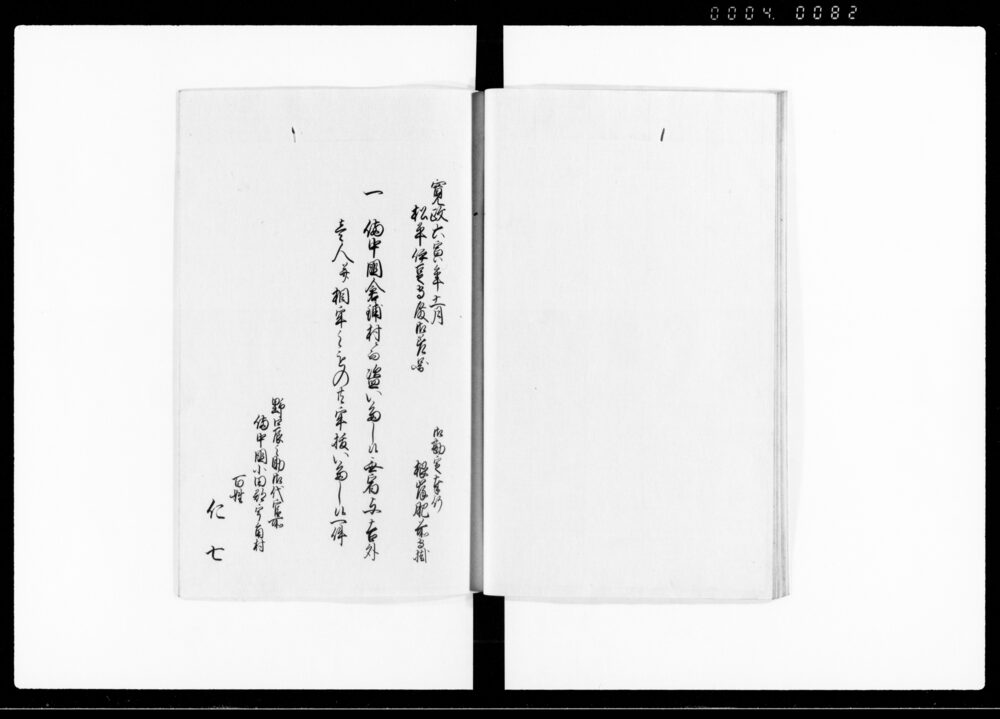 0004 0082
寛政六寅年十一月
松平伊豆守殿御差図
御勘定奉行
根岸肥前守掛
一 備中國倉鋪村ニ而盗いたし候無宿与吉外
壱人并相牢之もの共牢抜いたし候一件
野口辰之助御代官所
備中國小田郡
百姓
仁七